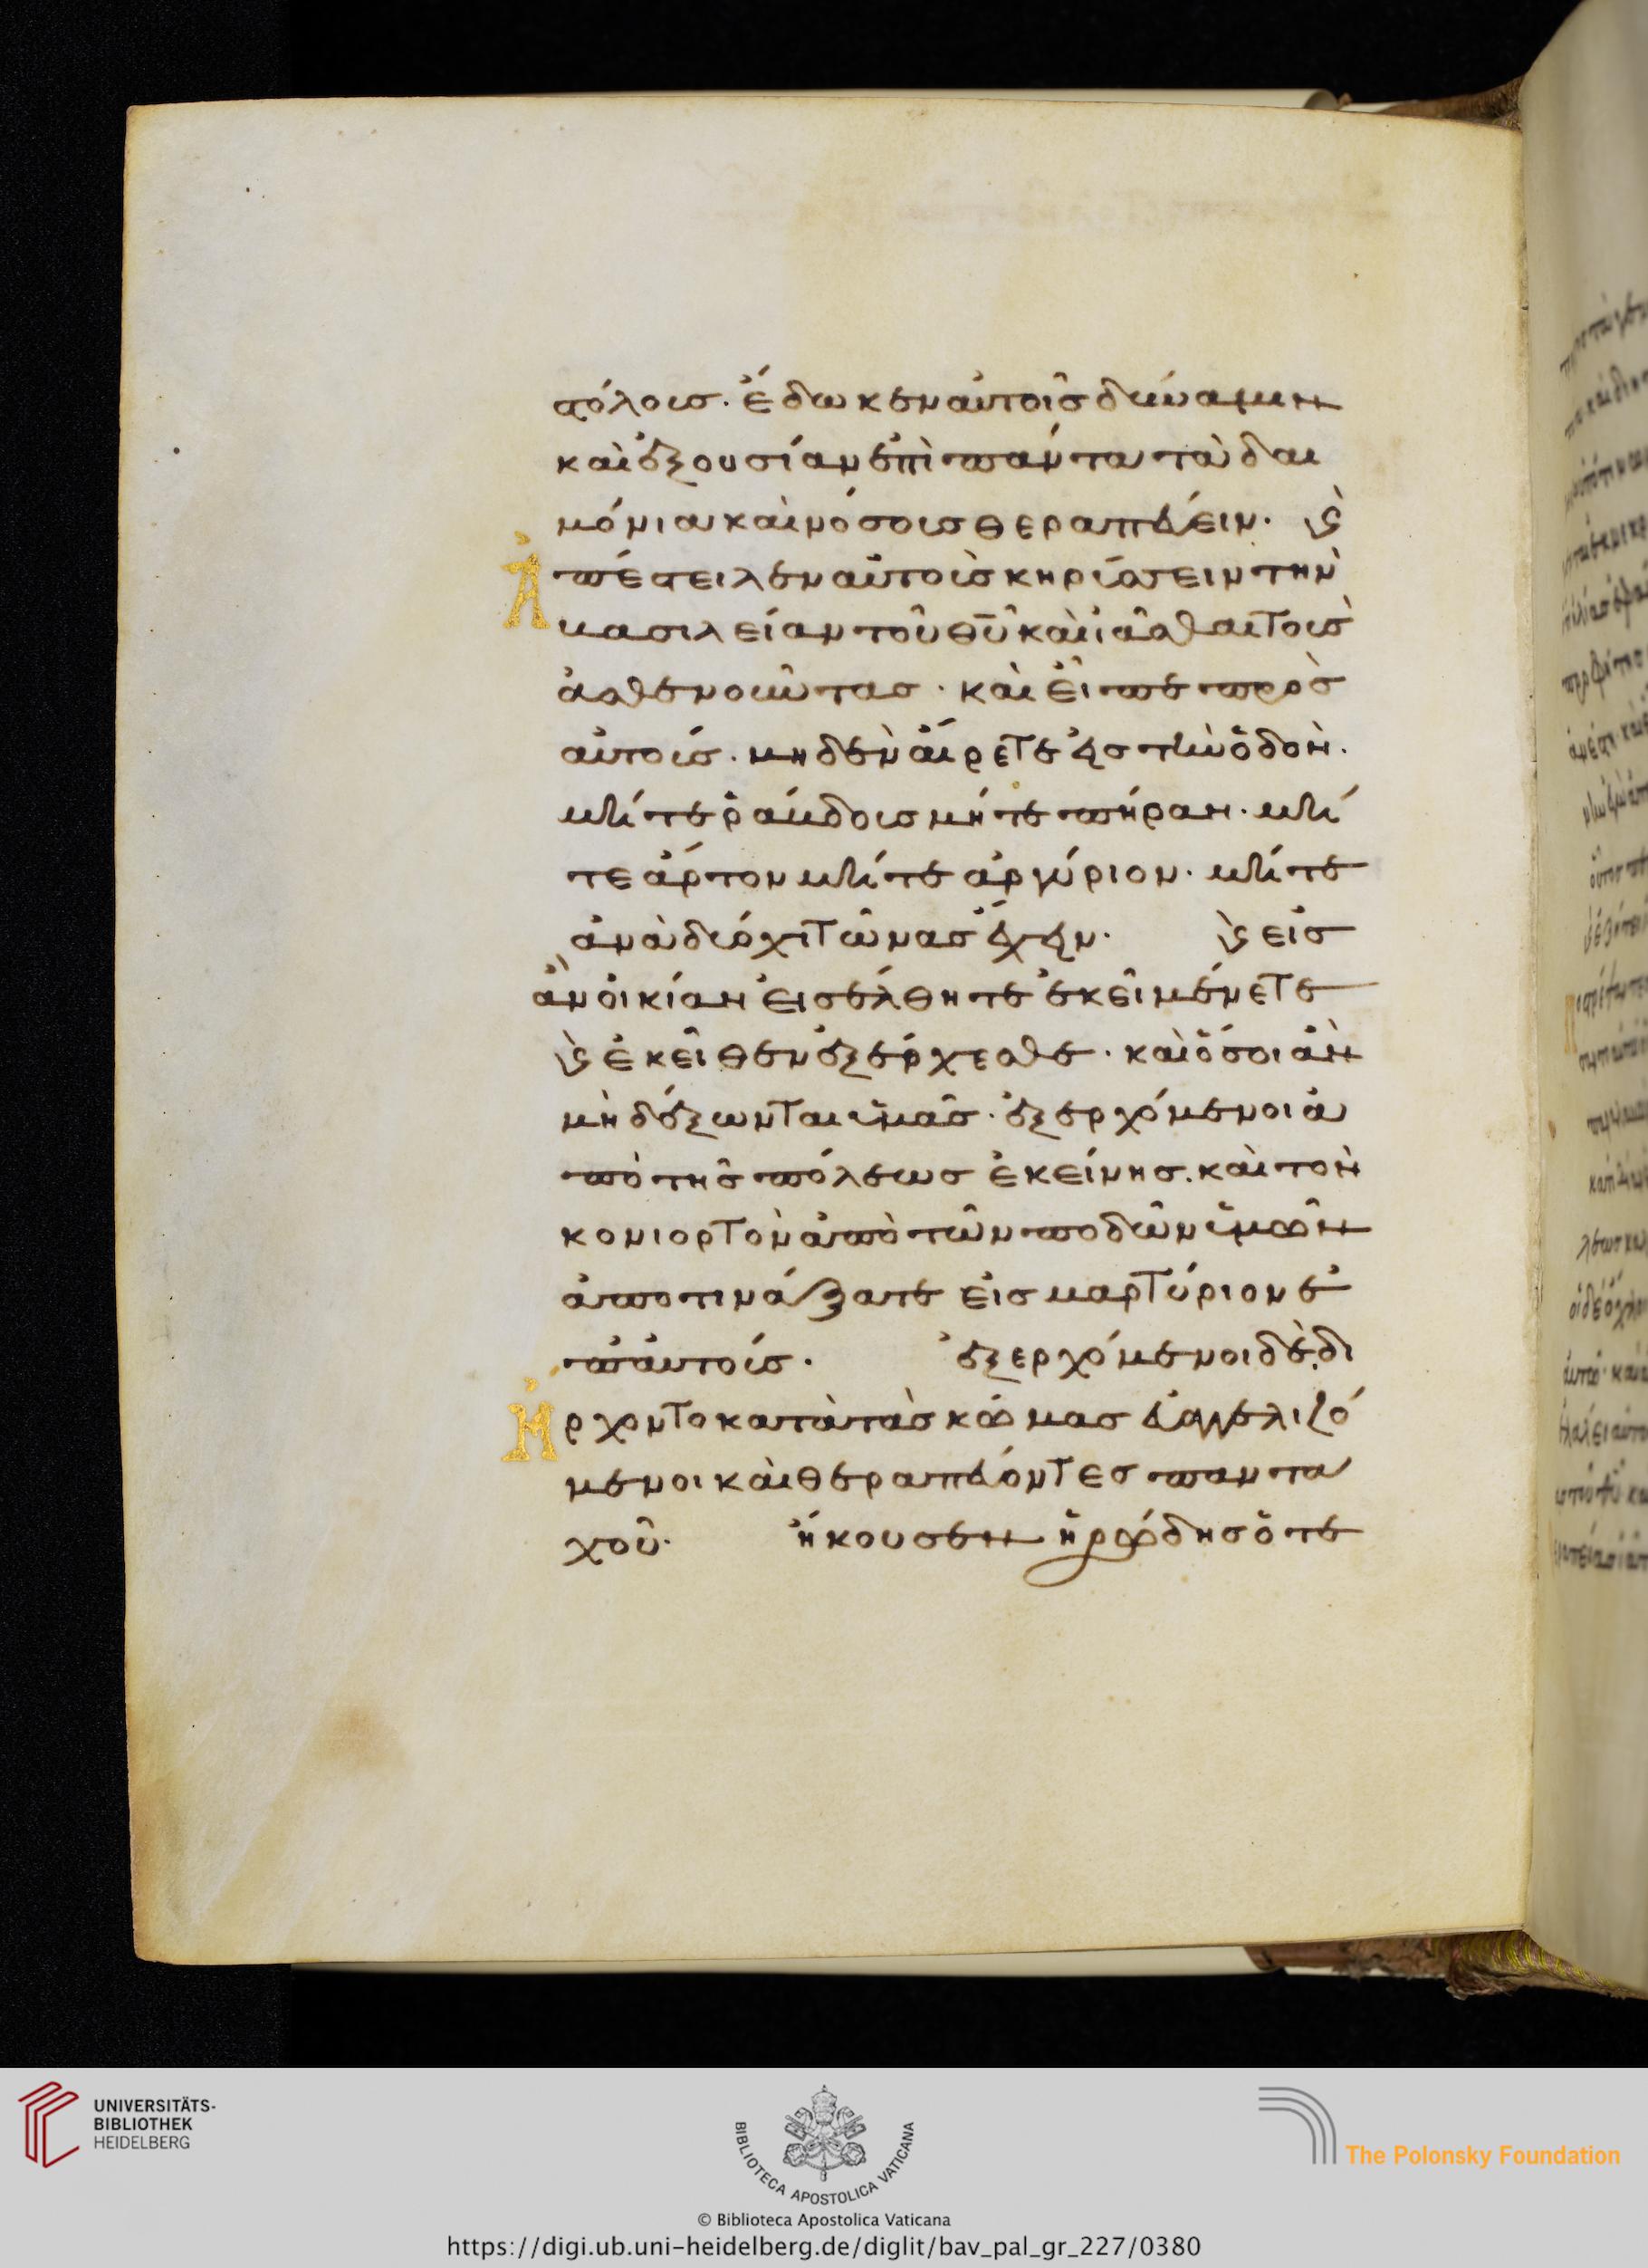 στόλους· ἔδωκεν αὐτοῖς δύναμιν
καὶ ἐξουσίαν ἐπὶ πάντα τὰ δαι
μόνια καὶ νόσους θεραπεύειν· ϗ
ἀπέστειλεν αὐτοὺς κηρύσσειν τὴν
βασιλείαν τοῦ θῦ καὶ ἰᾶσθαι τοὺς
ἀσθενοῦντας· καὶ εἶπε πρὸς
αὐτούς· μηδὲν αἴρετε εἰς τὴν ὁδόν·
μήτε ῥάβδους μήτε πήραν· μή
τε ἄρτον μήτε ἀργύριον· μήτε
ἀνὰ δύο χιτῶνας ἔχειν· ϗ εἰς
ἂν οἰκίαν εἰσέλθητε ἐκεῖ μένετε
ϗ ἐκεῖθεν ἐξέρχεσθε· καὶ ὅσοι ἂν
μὴ δέξωνται ὑμᾶς· ἐξερχόμενοι ἀ
πὸ τῆς πόλεως ἐκείνης· καὶ τὸν
κονιορτὸν ἀπὸ τῶν ποδῶν ὑμῶν
ἀποτινάξατε εἰς μαρτύριον ἐ
π' αὐτούς· ἐξερχόμενοι δὲ δι
ήρχοντο κατὰ τὰς κώμας εὐαγγελιζό
μενοι καὶ θεραπεύοντες παντα
χοῦ· ἤκουσεν ἡρώδης ὁ τε
UNIVERSITÄTS-
BIBLIOTHEK
HEIDELBERG
BIBLIOTECA APOSTOLICA VATICANA
The Polonsky Foundation
© Biblioteca Apostolica Vaticana
https://digi.ub.uni-heidelberg.de/diglit/bav_pal_gr_227/0380